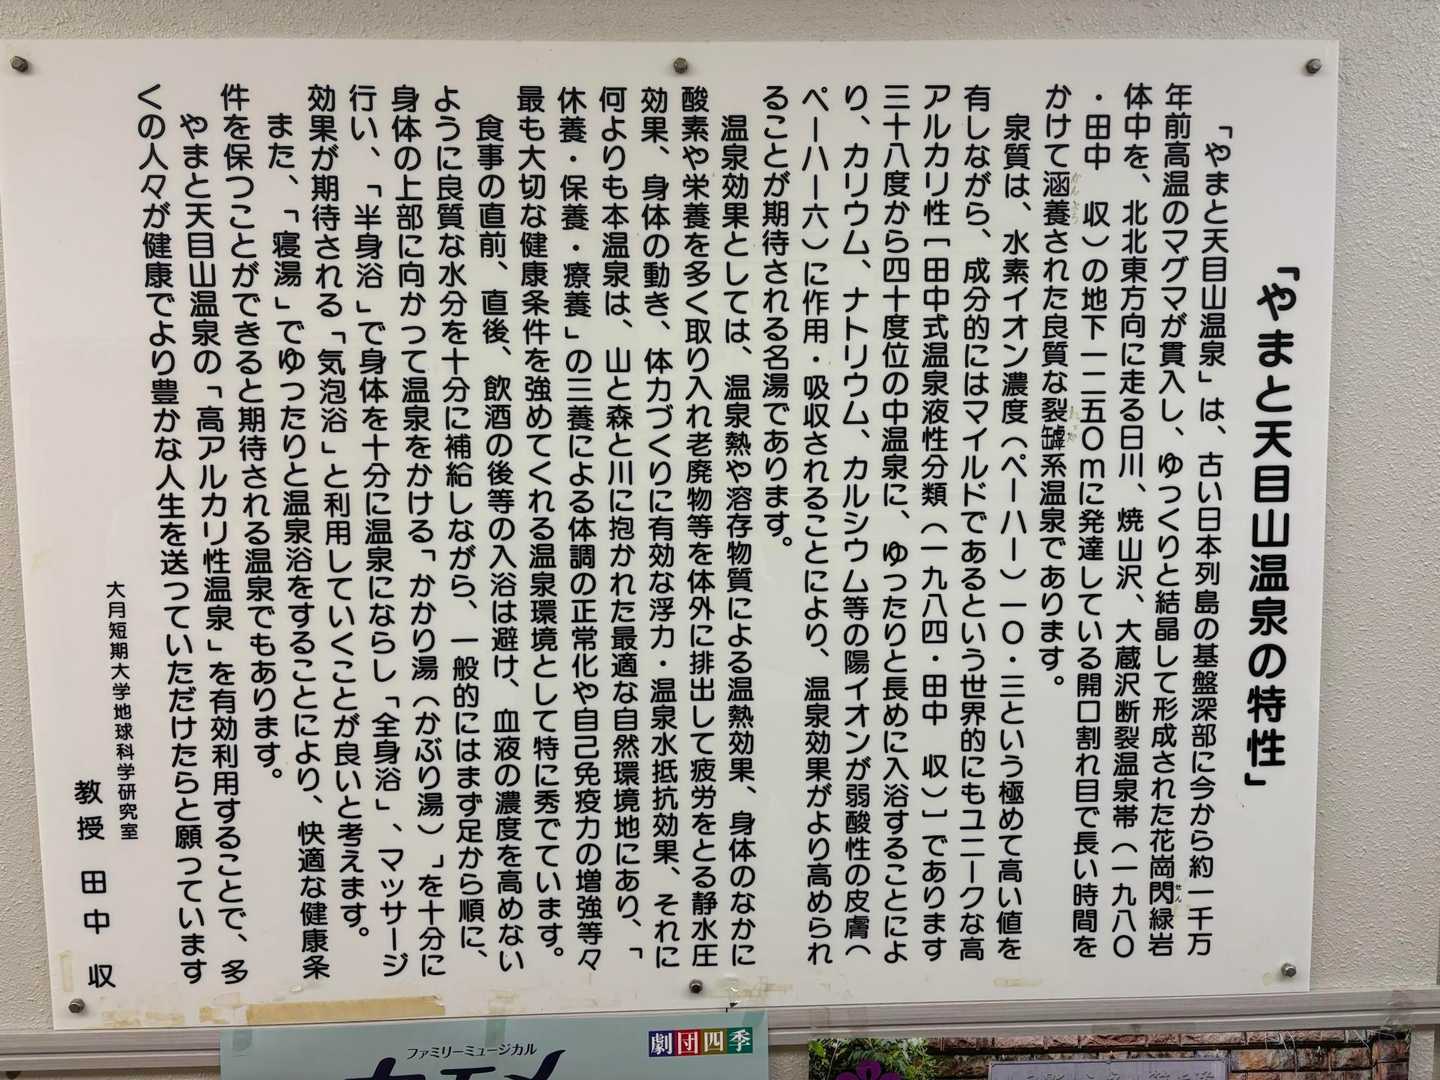 「やまと天目山温泉の特性」
「やまと天目山温泉」は、古い日本列島の基盤深部に今から約一千万
年前高温のマグマが貫入し、ゆっくりと結晶して形成された花崗閃緑岩
せん
体中を、北北東方向に走る日川、焼山沢、大蔵沢断裂温泉帯（一九八〇
・田中　収）の地下一二五〇ｍに発達している開口割れ目で長い時間を
かけて涵養された良質な裂罅系温泉であります。
かんよう
泉質は、水素イオン濃度（ペーハー）一〇・三という極めて高い値を
有しながら、成分的にはマイルドであるという世界的にもユニークな高
アルカリ性［田中式温泉液性分類（一九八四・田中　収）］であります
三十八度から四十度位の中温泉に、ゆったりと長めに入浴することによ
り、カリウム、ナトリウム、カルシウム等の陽イオンが弱酸性の皮膚（
ペーハー六）に作用・吸収されることにより、温泉効果がより高められ
ることが期待される名湯であります。
温泉効果としては、温泉熱や溶存物質による温熱効果、身体のなかに
酸素や栄養を多く取り入れ老廃物等を体外に排出して疲労をとる静水圧
効果、身体の動き、体力づくりに有効な浮力・温泉水抵抗効果、それに
何よりも本温泉は、山と森と川に抱かれた最適な自然環境地にあり、「
休養・保養・療養」の三養による体調の正常化や自己免疫力の増強等々
最も大切な健康条件を強めてくれる温泉環境として特に秀でています。
食事の直前、直後、飲酒の後等の入浴は避け、血液の濃度を高めない
ように良質な水分を十分に補給しながら、一般的にはまず足から順に、
身体の上部に向かって温泉をかける「かかり湯（かぶり湯）」を十分に
行い、「半身浴」で身体を十分に温泉にならし「全身浴」、マッサージ
効果が期待される「気泡浴」と利用していくことが良いと考えます。
また、「寝湯」でゆったりと温泉浴をすることにより、快適な健康条
件を保つことができると期待される温泉でもあります。
やまと天目山温泉の「高アルカリ性温泉」を有効利用することで、多
くの人々が健康でより豊かな人生を送っていただけたらと願っています
大月短期大学地球科学研究室
教授　田中　収
劇団四季
ファミリーミュージカル